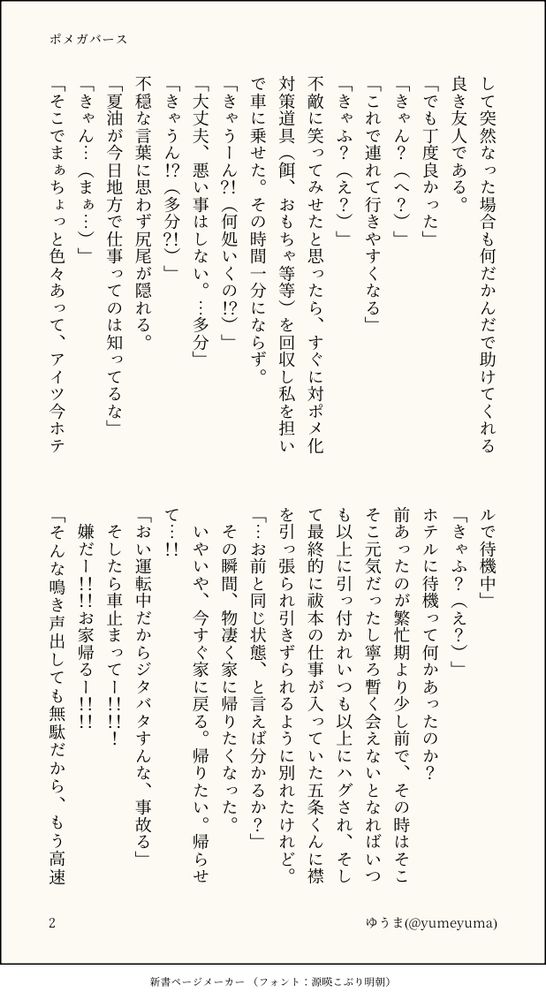 ポメガバース
して突然なった場合も何だかんだで助けてくれる
良き友人である。
「でも丁度良かった」
「きゃん？（へ？）」
「これで連れて行きやすくなる」
「きゃふ？（え？）」
不敵に笑ってみせたと思ったら、すぐに対ポメ化
対策道具（餌、おもちゃ等等）を回収し私を担い
で車に乗せた。その時間一分にならず。
「きゃうーん?!（何処いくの!?）」
「大丈夫、悪い事はしない。…多分」
「きゃうん!?（多分?!）」
不穏な言葉に思わず尻尾が隠れる。
「夏油が今日地方で仕事ってのは知ってるな」
「きゃん…（まぁ…）」
「そこでまぁちょっと色々あって、アイツ今ホテ
ルで待機中」
「きゃふ？（え？）」
ホテルに待機って何かあったのか？
前あったのが繁忙期より少し前で、その時はそこ
そこ元気だったし寧ろ暫く会えないとなればいつ
も以上に引っ付かれいつも以上にハグされ、そし
て最終的に祓本の仕事が入っていた五条くんに襟
を引っ張られ引きずられるように別れたけれど。
「…お前と同じ状態、と言えば分かるか？」
その瞬間、物凄く家に帰りたくなった。
いやいや、今すぐ家に戻る。帰りたい。帰らせ
て…!!
「おい運転中だからジタバタすんな、事故る」
そしたら車止まってー!!!!！
嫌だー!!!!お家帰るー!!!!
「そんな鳴き声出しても無駄だから、もう高速
2
ゆうま(@yumeyuma)
新書ページメーカー（フォント：源暎こぶり明朝）